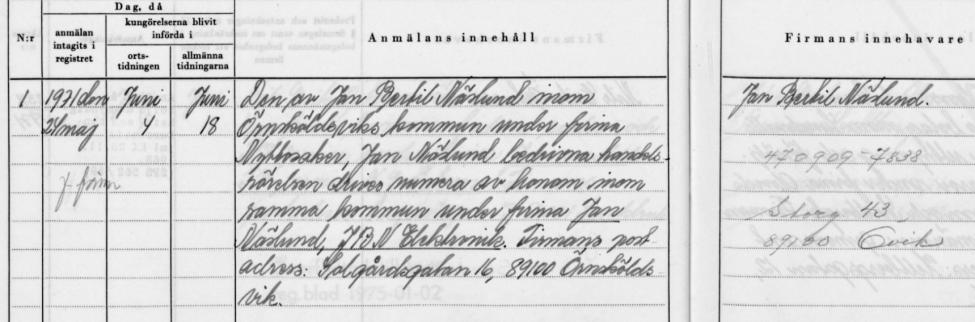 Dag, då
N:r
anmälan intagits i registret
kungörelserna blivit införda i
orts-tidningen
allmänna tidningarna
Anmälans innehåll
Firmans innehavare
1
1971 den
24 maj
Juni
4
Juni
18
Den av Jan Bertil Näslund inom
Örnsköldsviks kommun under firma
Nyttosaker, Jan Näslund bedrivna handels-
rörelsen drives numera av honom inom
samma kommun under firma Jan
Näslund, JBN Elektronik. Firmans post-
adress: Solgårdsgatan 16, 89100 Örnskölds-
vik.
Jan Bertil Näslund.
470909-7838
Storg 43
89100 Övik
blad 1975-01-02